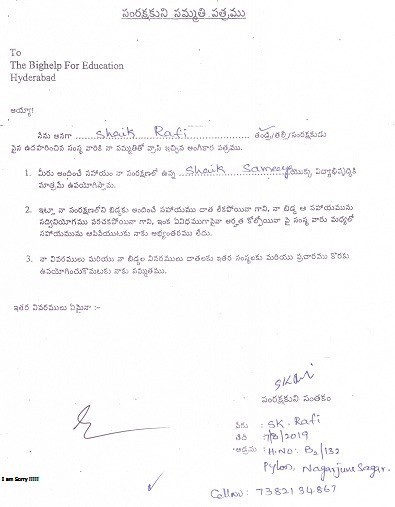 సంరక్షకుని సమ్మతి పత్రము
To
The Bighelp For Education
Hyderabad
అయ్యా!
నేను అనగా Shaik Rafi తండ్రి/తల్లి/సంరక్షకుడు
పైన ఉదహరించిన సంస్థ వారికి నా సమ్మతితో వ్రాసి ఇచ్చిన అంగీకార పత్రము.
1. మీరు అందించే సహాయం నా సంరక్షణలో ఉన్న Shaik Sameeya యొక్క విద్యాభివృద్ధికి
మాత్రమే ఉపయోగిస్తాను.
2. ఇట్లా నా సంరక్షణలోని బిడ్డకు అందించే సహాయము దాత లేకపోయినా గాని, నా బిడ్డ ఆ సహాయమును
సద్వినియోగము పరచకపోయినా గాని, ఇంక ఏవిధముగానైనా అర్హత కోల్పోయినా పై సంస్థ వారు మధ్యలో
సహాయమును ఆపివేయుటకు నాకు అభ్యంతరము లేదు.
3. నా వివరములు మరియు నా బిడ్డల వివరములు దాతలకు ఇతర సంస్థలకు మరియు ప్రచారము కొరకు
ఉపయోగించుకొనుటకు నాకు సమ్మతము.
ఇతర వివరములు ఏమైనా :-
సంరక్షకుని సంతకం
పేరు : SK. Rafi
తేది : 7/8/2019
అడ్రసు : H.NO: B2/132
Pylon, Nagarjuna Sagar.
Cell no: 7382134867
I am Sorry !!!!!